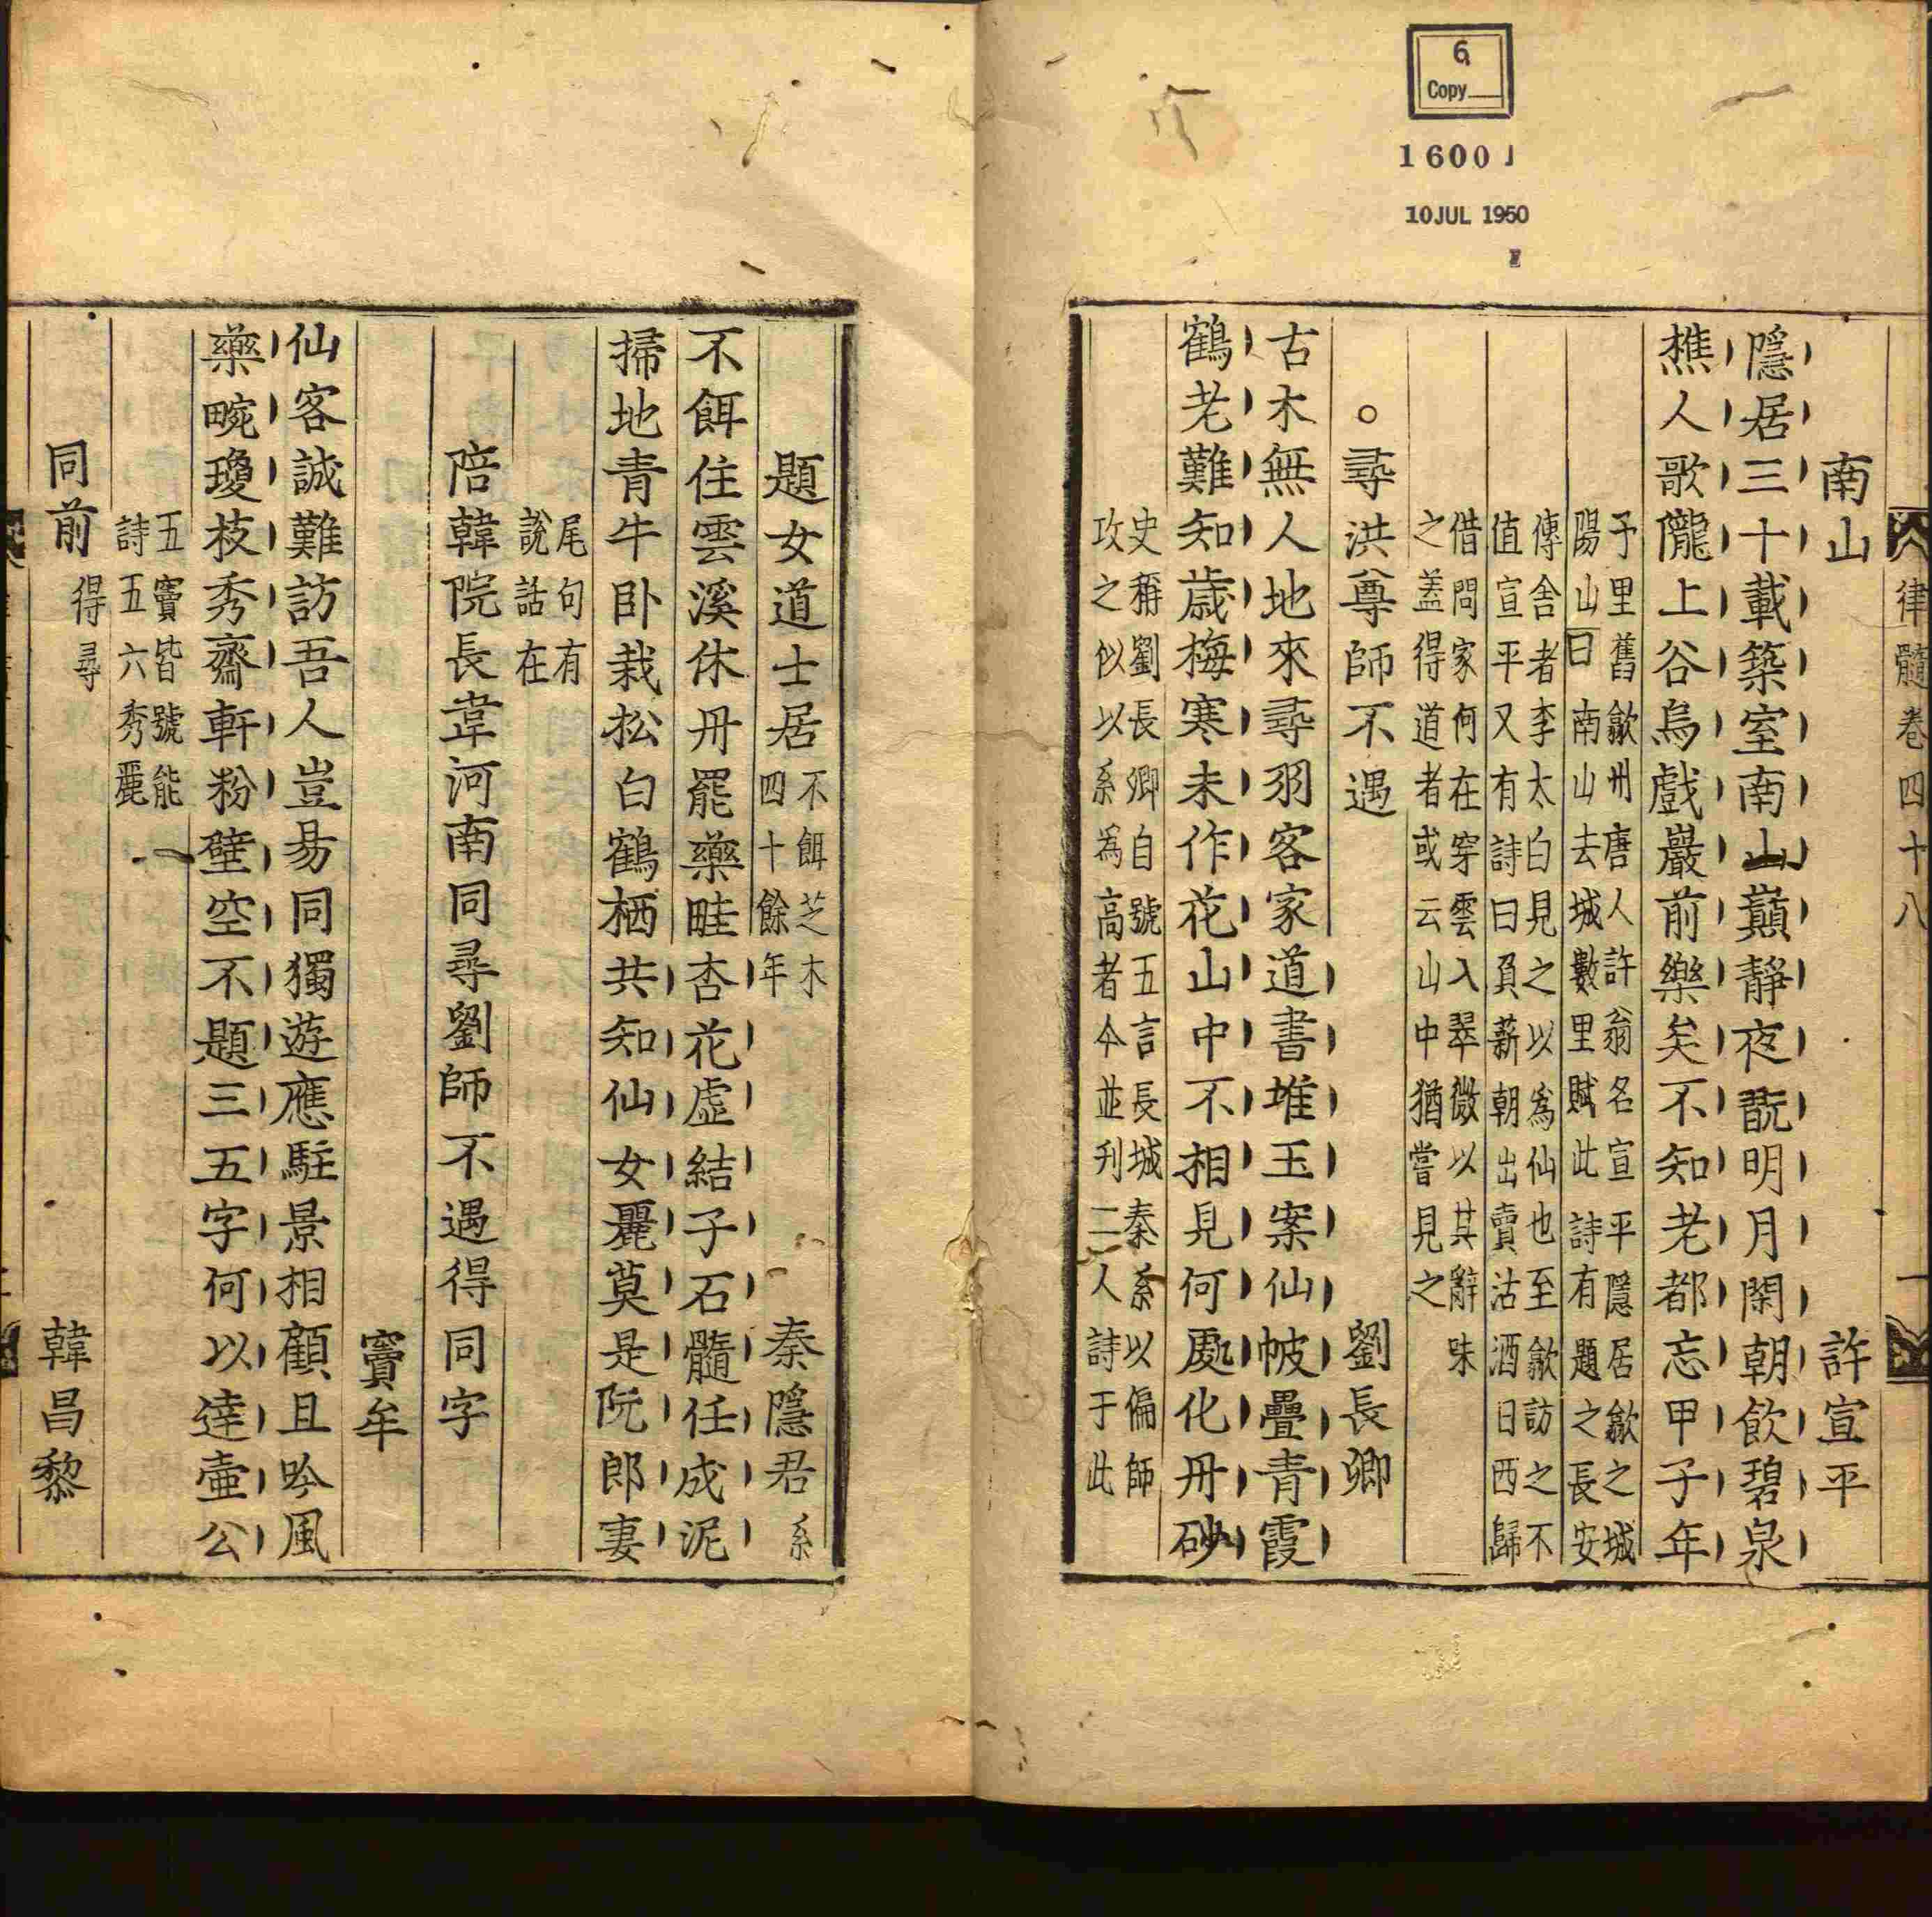 6
Copy
1600
10JUL 1950
律髓卷四十八
南山 許宣平
隱居三十載築室南山巔靜夜翫明月閑朝飲碧泉
樵人歌隴上谷鳥戲巖前樂矣不知老都忘甲子年
予里舊歙州唐人許翁名宣平隱居歙之城
陽山曰南山去城數里賦此詩有題之長安
傳舍者李太白見之以爲仙也至歙訪之不
值宣平又有詩曰負薪朝出賣沽酒日西歸
借問家何在穿雲入翠微以其辭味
之盖得道者或云山中猶嘗見之
○尋洪尊師不遇 劉長卿
古木無人地來尋羽客家道書堆玉案仙帔疊青霞
鶴老難知歲梅寒未作花山中不相見何處化丹砂
史稱劉長卿自號五言長城秦系以偏師
攻之似以系爲高者今並刋二人詩于此
題女道士居 不餌芝木
四十餘年 秦隱君 系
不餌住雲溪休丹罷藥畦杏花虛結子石髓任成泥
掃地青牛卧栽松白鶴栖共知仙女麗莫是阮郎妻
尾句有
說話在
陪韓院長韋河南同尋劉師不遇得同字
竇牟
仙客誠難訪吾人豈易同獨遊應駐景相顧且吟風
藥畹瓊枝秀齋軒粉壁空不題三五字何以達壷公
五竇皆號能
詩五六秀麗
同前 得尋 韓昌黎